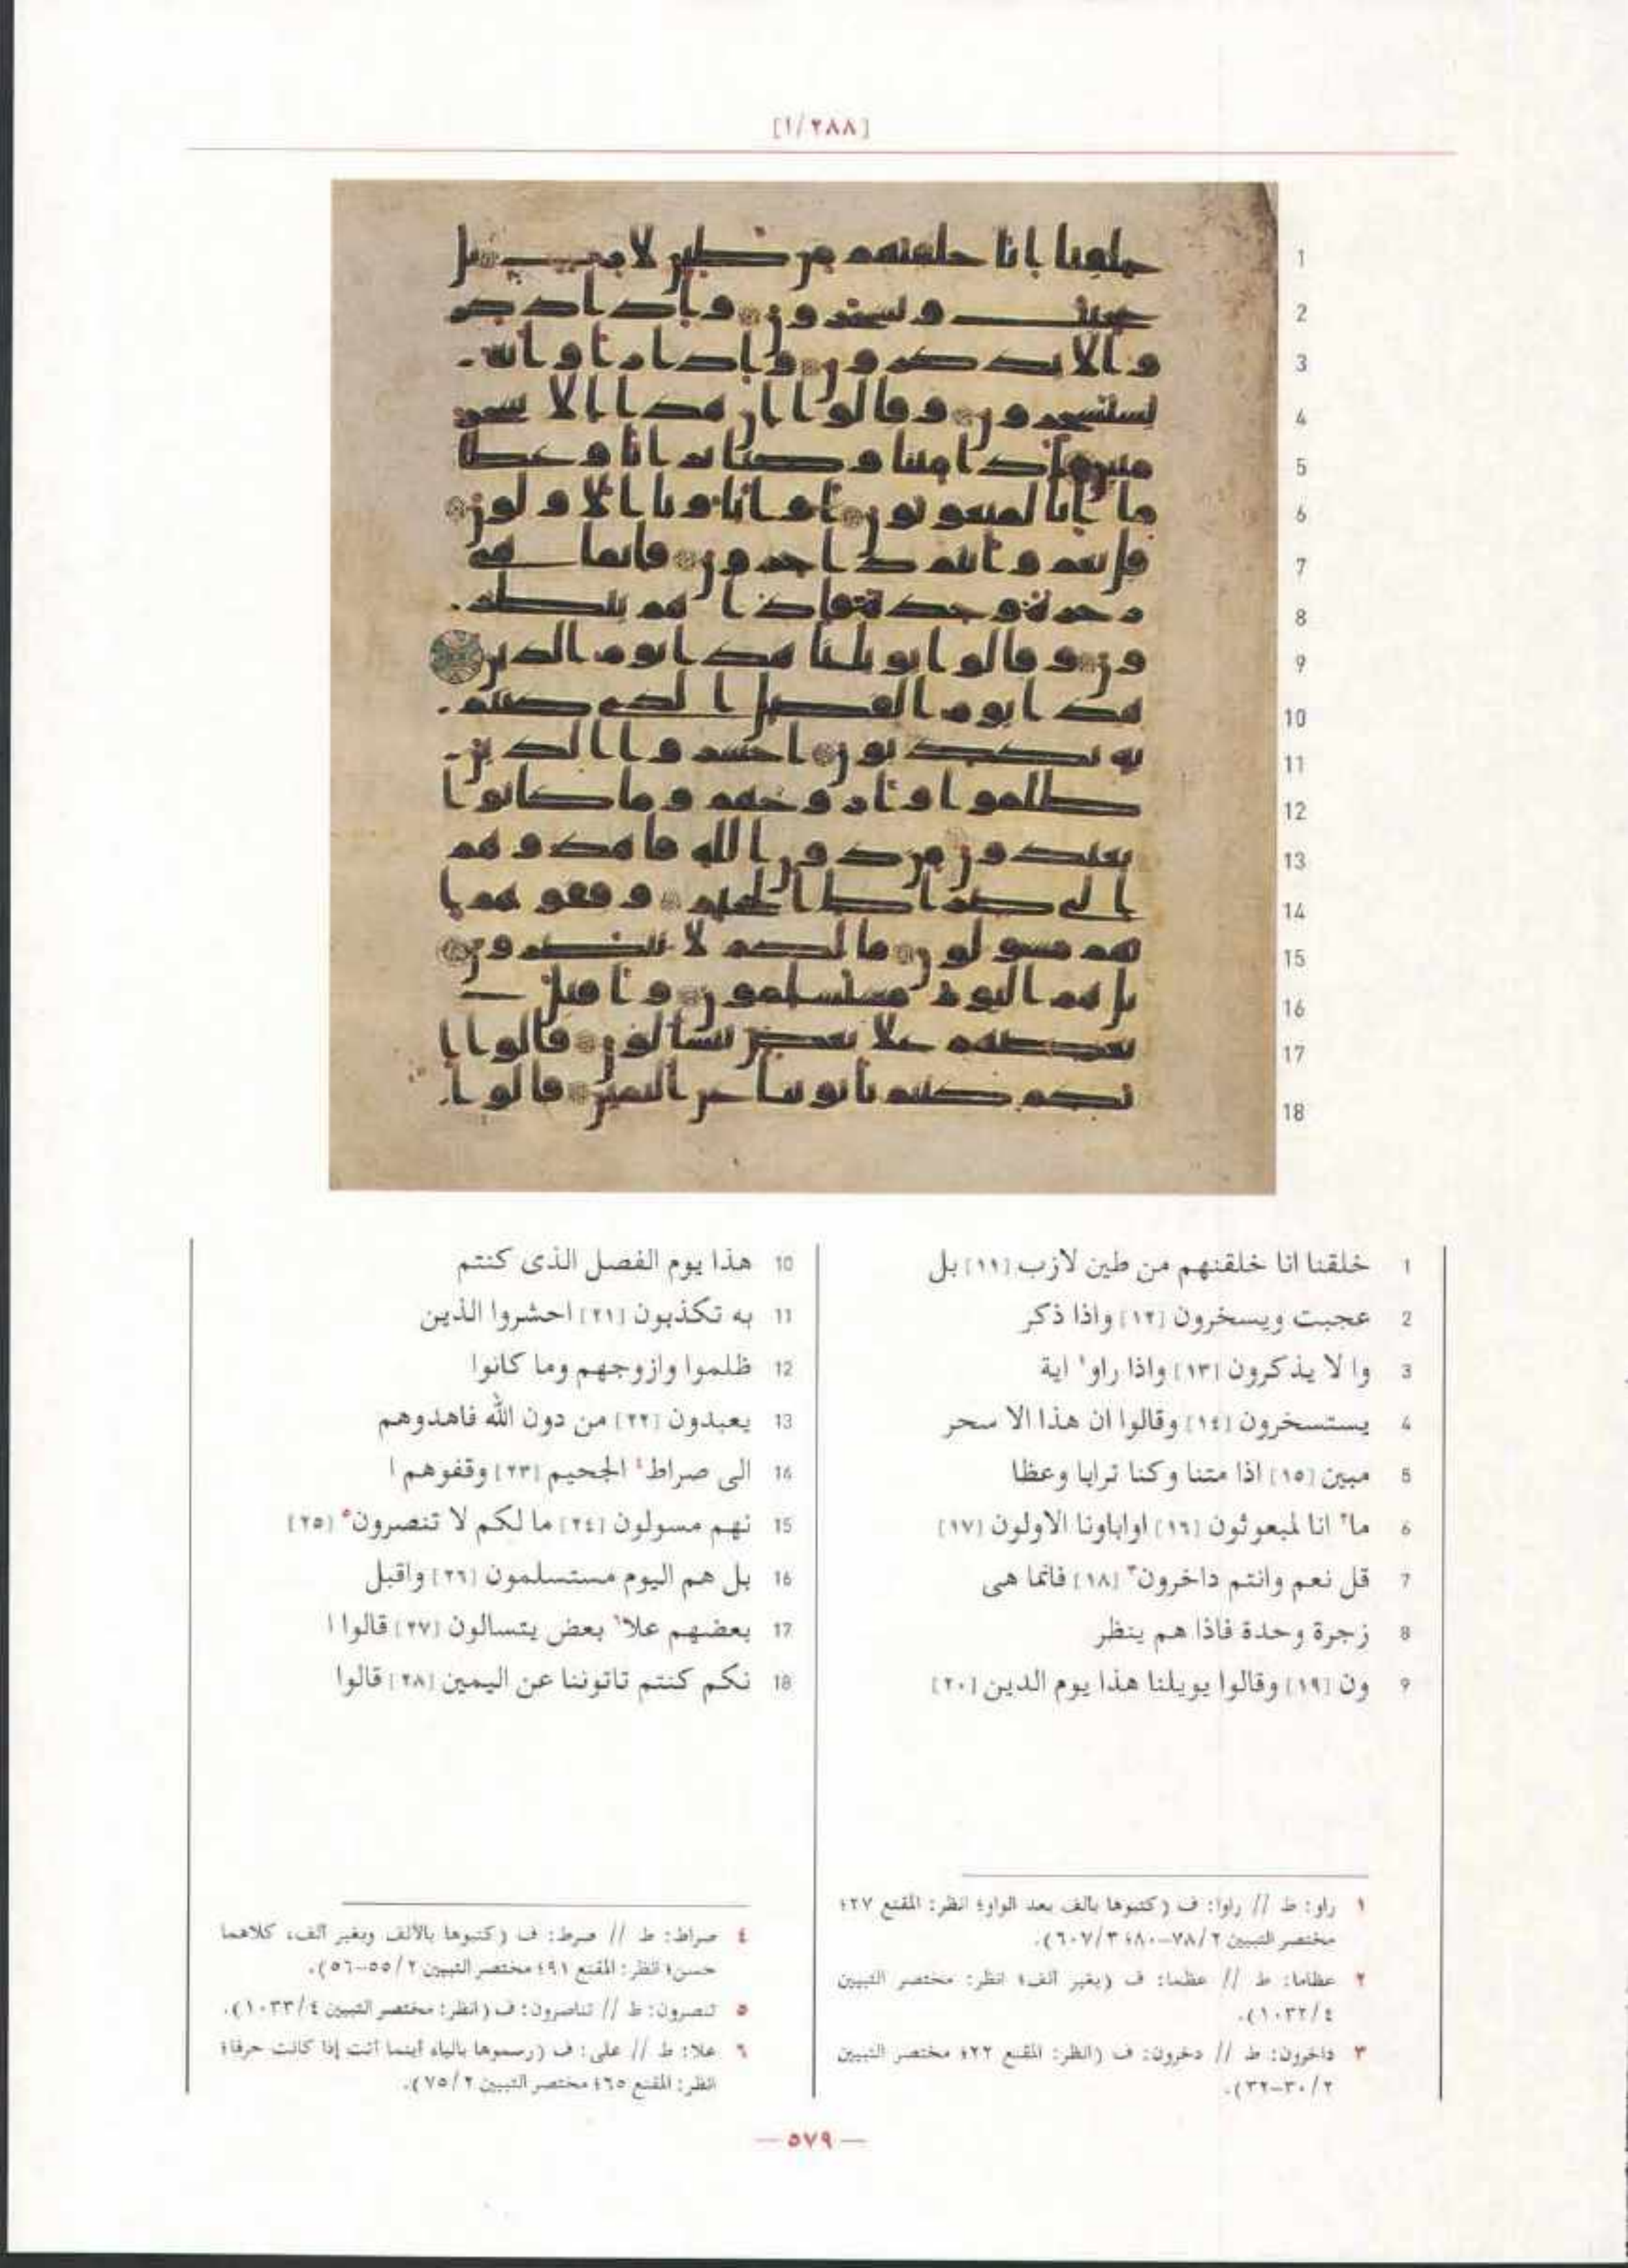 [١/٢٨٨]
1 خلقنا انا خلقنهم من طين لازب [١١] بل
2 عجبت ويسخرون [١٢] واذا ذكر
3 وا لا يذكرون [١٣] واذا راو١ اية
4 يستسخرون [١٤] وقالوا ان هذا الا سحر
5 مبين [١٥] اذا متنا وكنا ترابا وعظا
6 ما٢ انا لمبعوثون [١٦] اواباونا الاولون [١٧]
7 قل نعم وانتم داخرون٣ [١٨] فانما هى
8 زجرة وحدة فاذا هم ينظر
9 ون [١٩] وقالوا يويلنا هذا يوم الدين [٢٠]
10 هذا يوم الفصل الذى كنتم
11 به تكذبون [٢١] احشروا الذين
12 ظلموا وازوجهم وما كانوا
13 يعبدون [٢٢] من دون الله فاهدوهم
14 الى صراط٤ الجحيم [٢٣] وقفوهم ا
15 نهم مسولون [٢٤] ما لكم لا تنصرون٥ [٢٥]
16 بل هم اليوم مستسلمون [٢٦] واقبل
17 بعضهم علا٦ بعض يتسالون [٢٧] قالوا ا
18 نكم كنتم تاتوننا عن اليمين [٢٨] قالوا
١ راو: ط // راوا: ف (كتبوها بألف بعد الواو؛ انظر: المقنع ٢٧؛
مختصر التبيين ٢/٧٨–٨٠؛ ٣/٦٠٧).
٢ عظاما: ط // عظما: ف (بغير ألف؛ انظر: مختصر التبيين
٤/١٠٣٢).
٣ داخرون: ط // دخرون: ف (انظر: المقنع ٢٢؛ مختصر التبيين
٢/٣٠–٣٢).
٤ صراط: ط // صرط: ف (كتبوها بالألف وبغير ألف، كلاهما
حسن؛ انظر: المقنع ٩١؛ مختصر التبيين ٢/٥٥–٥٦).
٥ تنصرون: ط // تناصرون: ف (انظر: مختصر التبيين ٤/١٠٣٣).
٦ علا: ط // على: ف (رسموها بالياء أينما أتت إذا كانت حرفا؛
انظر: المقنع ٦٥؛ مختصر التبيين ٢/٧٥).
— ٥٧٩ —